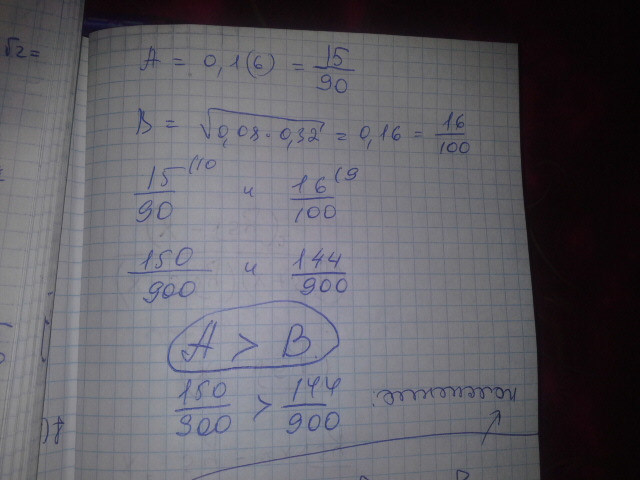 √2=
A = 0,1(6) = 15/90
B = √0,08·0,32 = 0,16 = 16/100
15/90 (10 и 16/100 (9
150/900 и 144/900
A > B
150/900 > 144/900